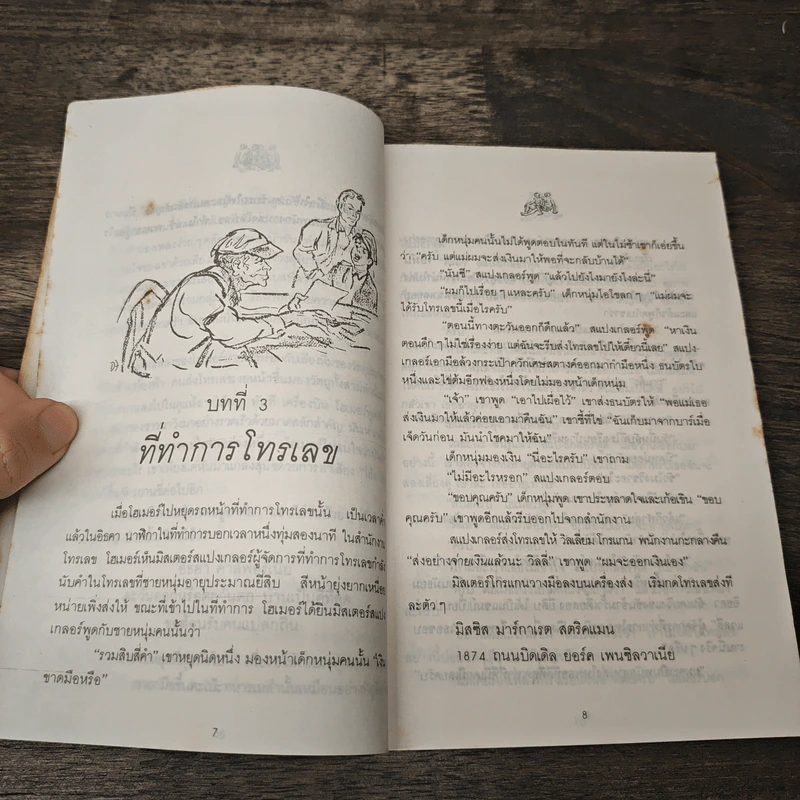 บทที่ 3
ที่ทำการโทรเลข
เมื่อโฮเมอร์ไปหยุดรถหน้าที่ทำการโทรเลขนั้น เป็นเวลาค่ำ
แล้วในอิธคา นาฬิกาในที่ทำการบอกเวลาหนึ่งทุ่มสองนาที ในสำนักงาน
โทรเลข โฮเมอร์เห็นมิสเตอร์สแปงเกลอร์ผู้จัดการที่ทำการโทรเลขกำลัง
นับคำในโทรเลขที่ชายหนุ่มอายุประมาณยี่สิบ สีหน้ายุ่งยากเหนื่อย
หน่ายเพิ่งส่งให้ ขณะที่เข้าไปในที่ทำการ โฮเมอร์ได้ยินมิสเตอร์สแปง
เกลอร์พูดกับชายหนุ่มคนนั้นว่า
“รวมสิบสี่คำ” เขาหยุดนิดหนึ่ง มองหน้าเด็กหนุ่มคนนั้น “เงิน
ขาดมือหรือ”
7
เด็กหนุ่มคนนั้นไม่ได้พูดตอบในทันที แต่ในไม่ช้าเขาก็เอ่ยขึ้น
ว่า “ครับ แต่แม่ผมจะส่งเงินมาให้พอที่จะกลับบ้านได้”
“นั่นซี” สแปงเกลอร์พูด “แล้วไปยังไงมายังไงล่ะนี่”
“ผมก็ไปเรื่อย ๆ แหละครับ” เด็กหนุ่มไอโขลก ๆ “แม่ผมจะ
ได้รับโทรเลขนี้เมื่อไรครับ”
“ตอนนี้ทางตะวันออกก็ดึกแล้ว” สแปงเกลอร์พูด “หาเงิน
ตอนดึก ๆ ไม่ใช่เรื่องง่าย แต่ฉันจะรีบส่งโทรเลขไปให้เดี๋ยวนี้เลย” สแปง-
เกลอร์เอามือล้วงกระเป๋าควักเศษสตางค์ออกมากำมือหนึ่ง ธนบัตรใบ
หนึ่งและไข่ต้มอีกฟองหนึ่งโดยไม่มองหน้าเด็กหนุ่ม
“เจ้า” เขาพูด “เอาไปเผื่อไว้” เขาส่งธนบัตรให้ “พอแม่เธอ
ส่งเงินมาให้แล้วค่อยเอามาคืนฉัน” เขาชี้ที่ไข่ “ฉันเก็บมาจากบาร์เมื่อ
เจ็ดวันก่อน มันนำโชคมาให้ฉัน”
เด็กหนุ่มมองเงิน “นี่อะไรครับ” เขาถาม
“ไม่มีอะไรหรอก” สแปงเกลอร์ตอบ
“ขอบคุณครับ” เด็กหนุ่มพูด เขาประหลาดใจและเก้อเขิน “ขอบ
คุณครับ” เขาพูดอีกแล้วรีบออกไปจากสำนักงาน
สแปงเกลอร์ส่งโทรเลขให้ วิลเลี่ยม โกรแกน พนักงานกะกลางคืน
“ส่งอย่างจ่ายเงินแล้วนะ วิลลี่” เขาพูด “ผมจะออกเงินเอง”
มิสเตอร์โกรแกนวางมือลงบนเครื่องส่ง เริ่มกดโทรเลขส่งที
ละตัว ๆ
มิสซิส มาร์กาเรต สตริคแมน
1874 ถนนบิดเดิล ยอร์ค เพนซิลวาเนีย
8